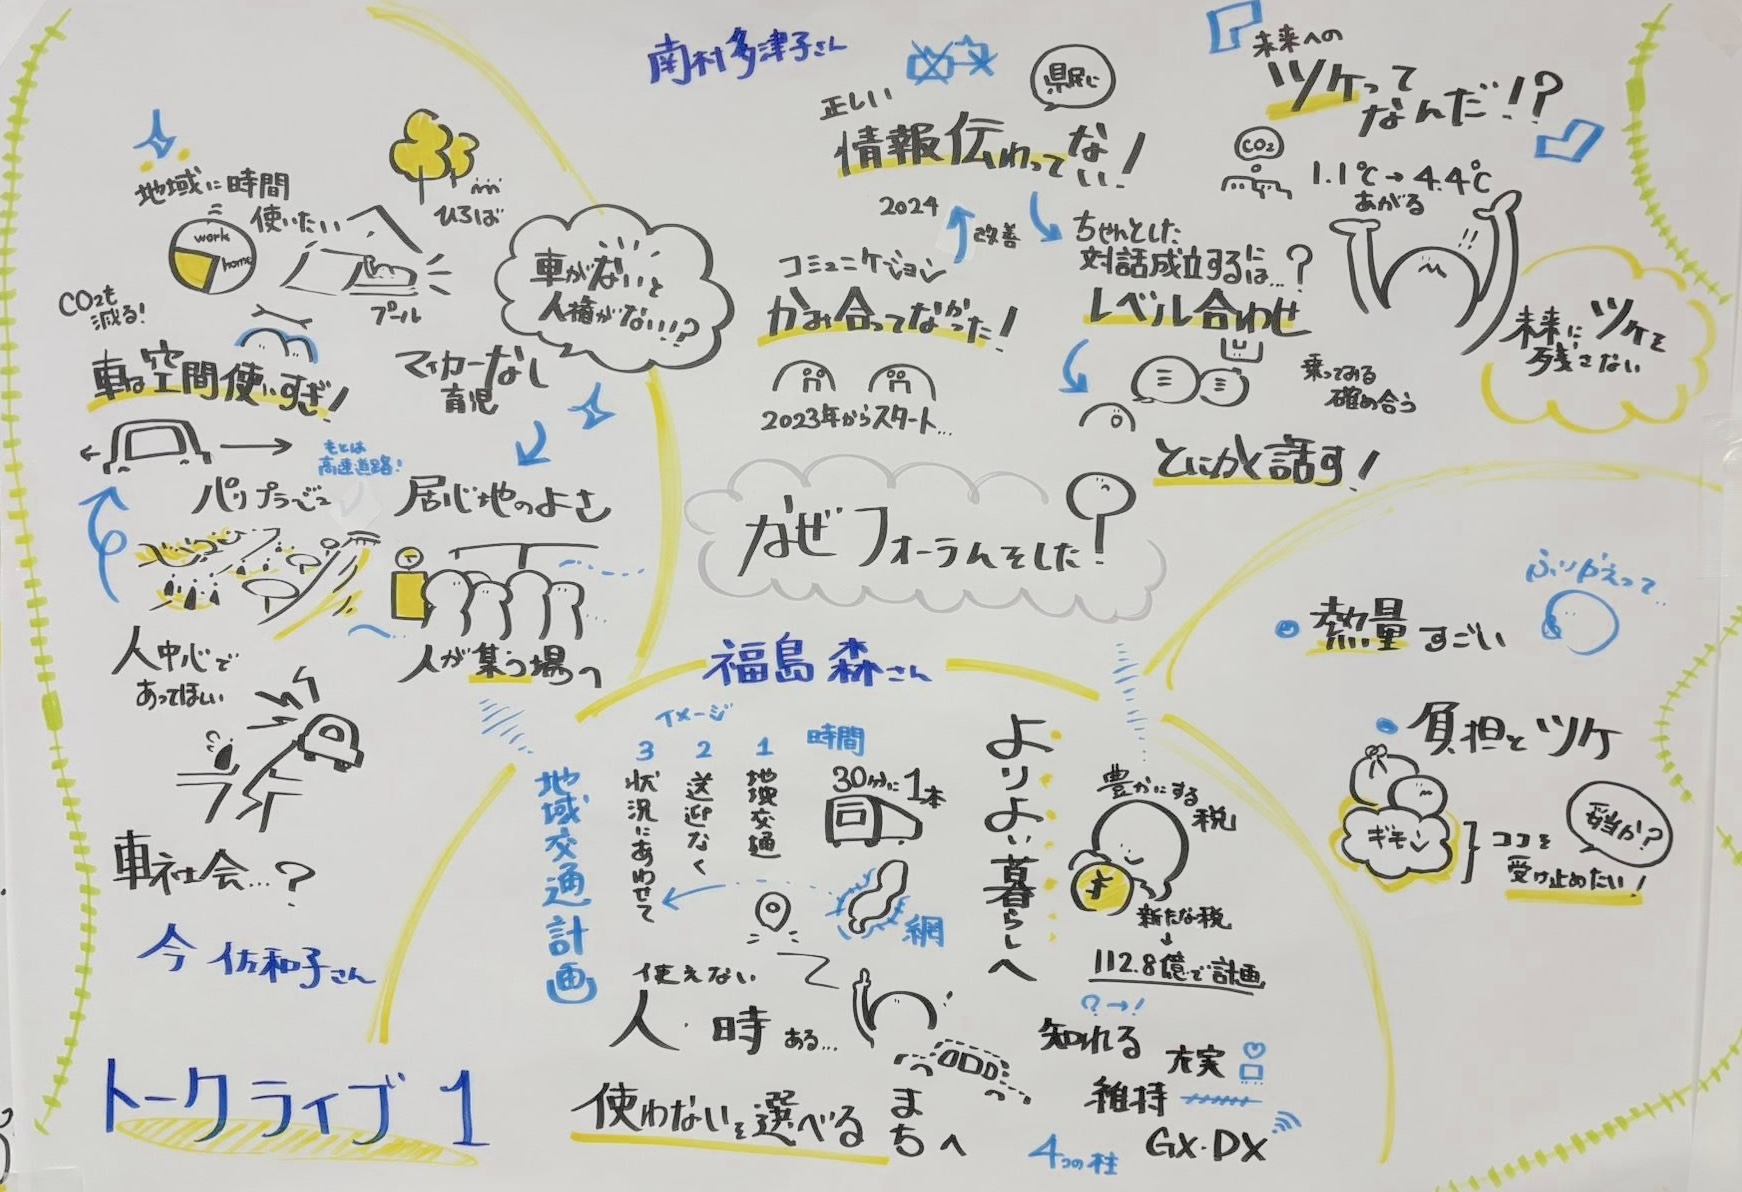 南村多津子さん
正しい
県民に
情報伝わってない!
2024
改善
コミュニケーション
かみ合ってなかった!
2023年からスタート...
ちゃんとした
対話成立するには...?
レベル合わせ
乗ってみる
確め合う
とにかく話す!
未来への
ツケって
なんだ!?
CO2
1.1℃→4.4℃
あがる
未来にツケを
残さない
なぜフォーラムをした!
地域に時間
使いたい
work
home
CO2も
減る!
ひろば
プール
車がないと
人権がない!!?
車は空間使いすぎ!
マイカーなし
育児
もとは
高速道路!
パリプラージュ
居心地のよさ
人が集う場へ
人中心で
あってほしい
車社会...?
今 佐和子さん
トークライブ 1
福島 森さん
地域交通計画
イメージ
1 地域交通
2 送迎なく
3 状況にあわせて
時間
30分に1本
網
使えない
人・時ある...
使わないを選べる
まちへ
よりよい暮らしへ
豊かにする
税
新たな税
112.8億で計画
?→!
知れる
充実
維持
GX・DX
4つの柱
ふりかえって..
熱量すごい
負担とツケ
ギモン
ココを
受け止めたい!
妥当か?